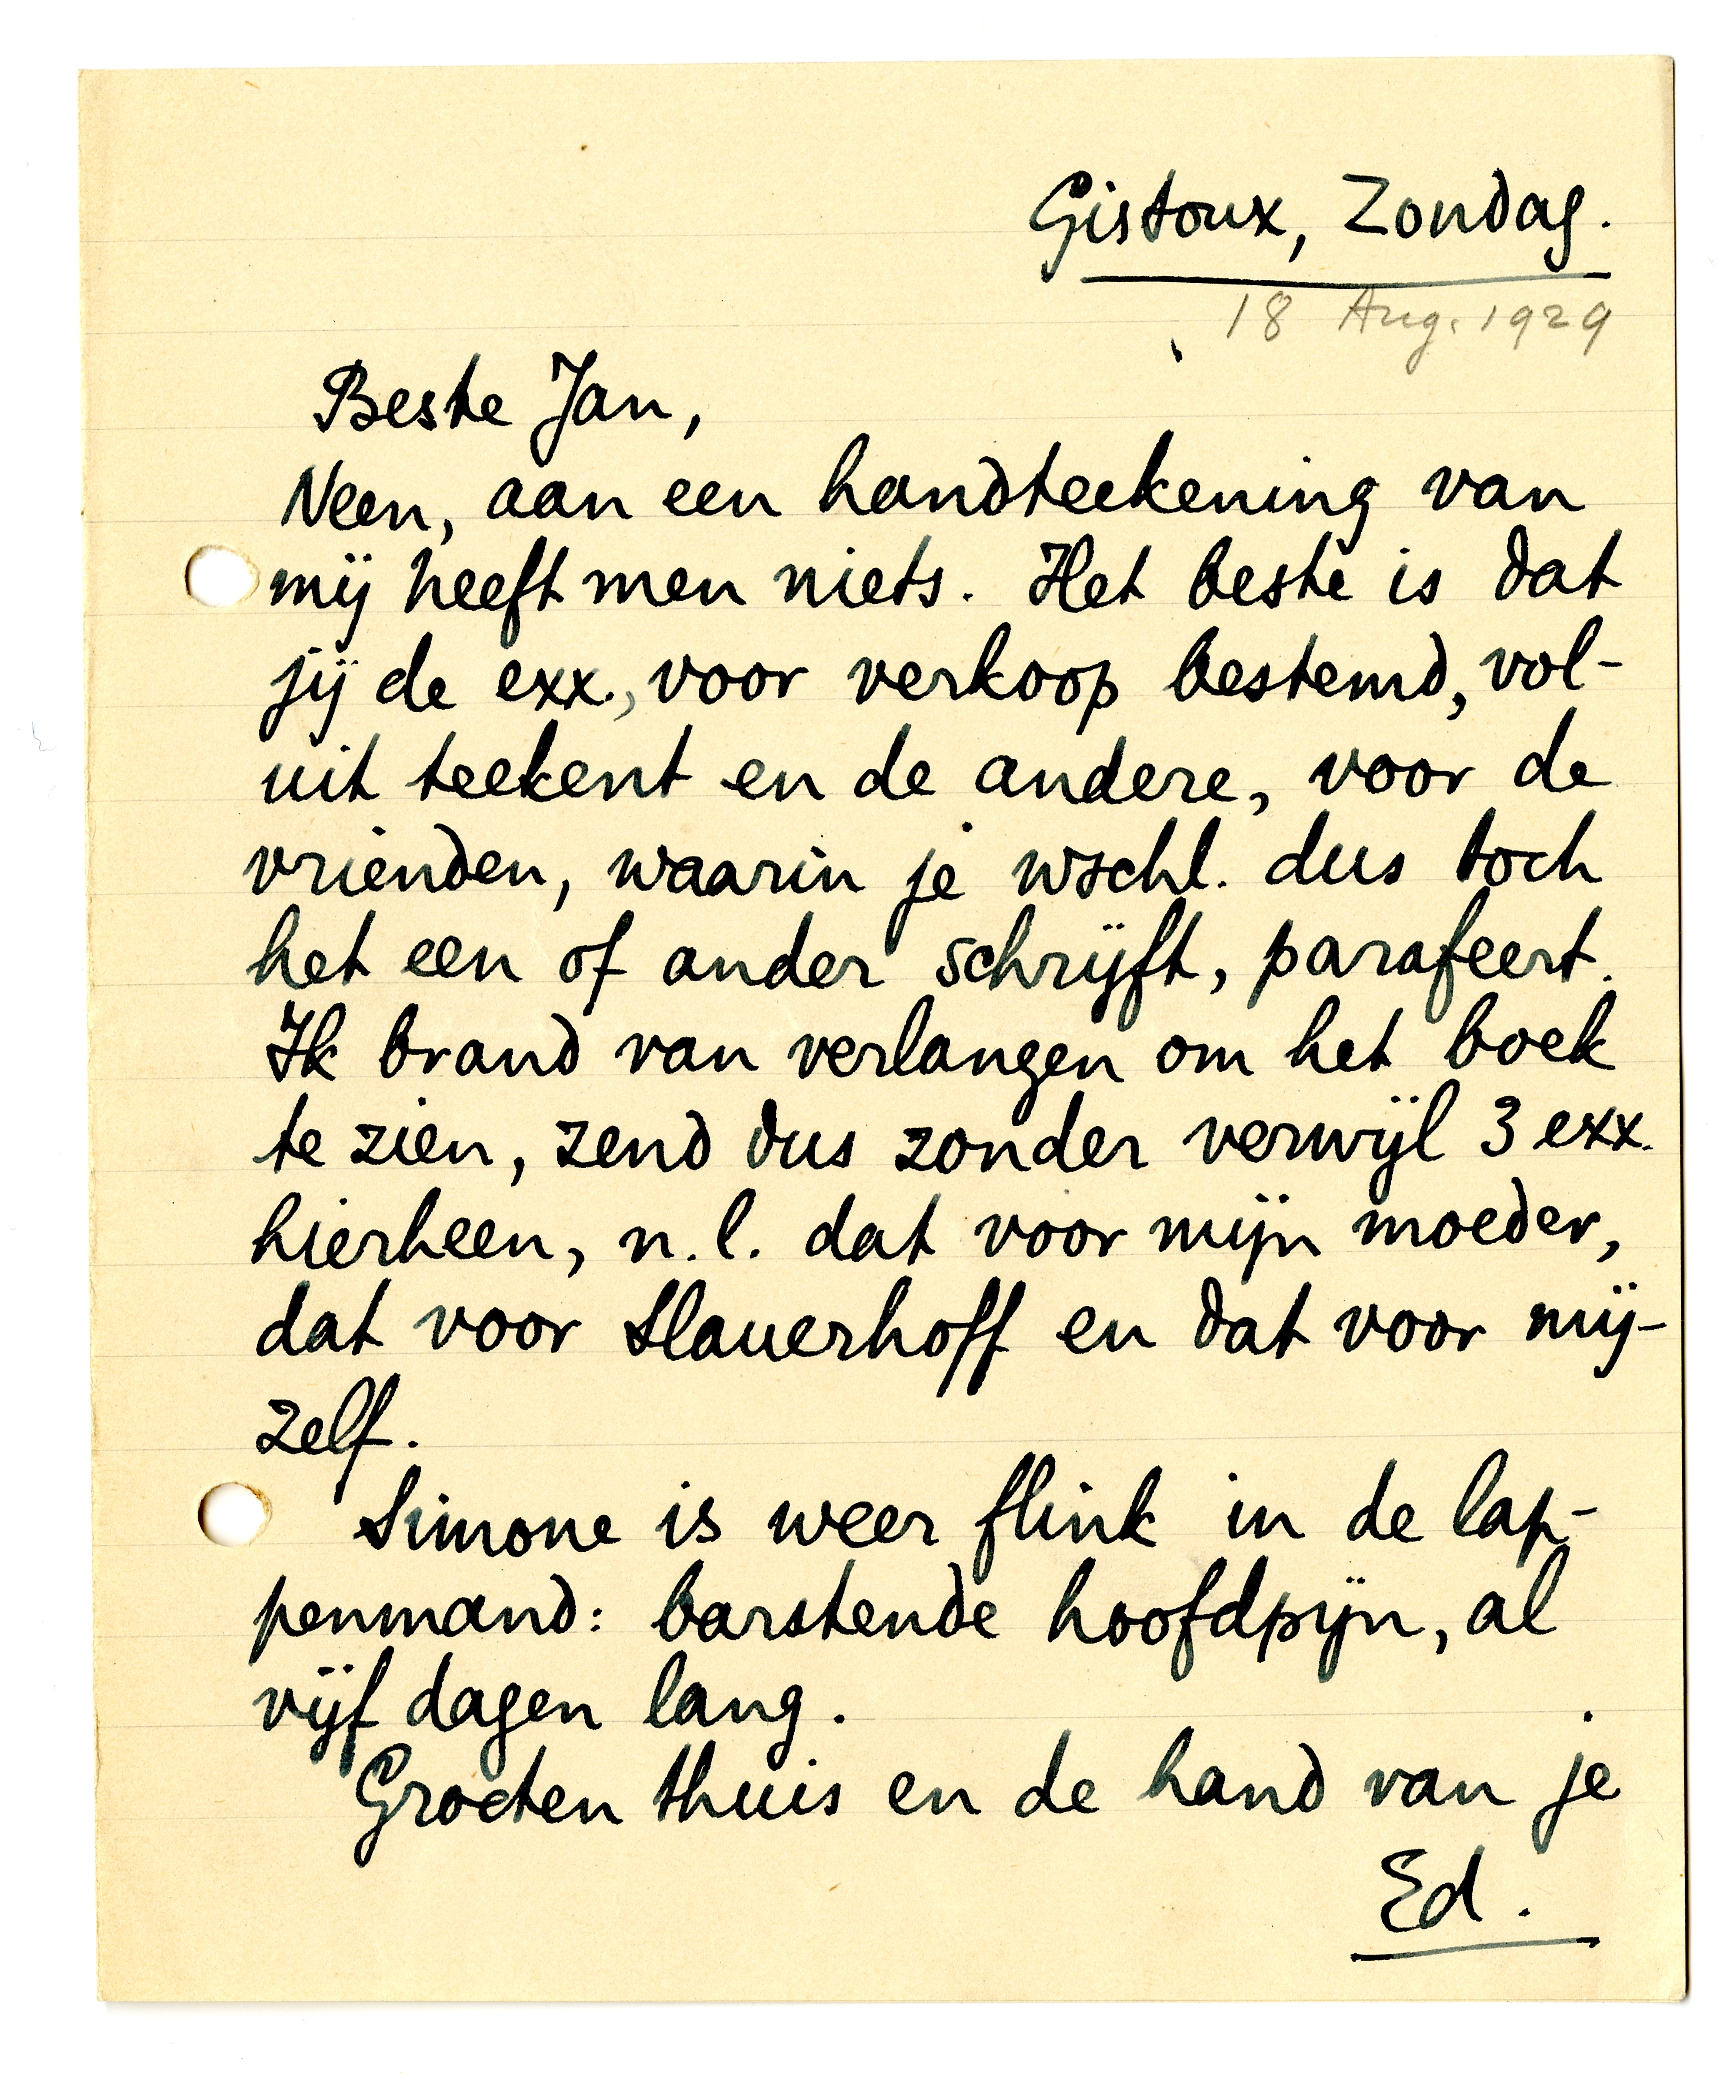 Gistoux, Zondag.
18 Aug. 1929
Beste Jan,
Neen, aan een handteekening van
mij heeft men niets. Het beste is dat
jij de exx., voor verkoop bestemd, vol-
uit teekent en de andere, voor de
vrienden, waarin je wschl. dus toch
het een of ander schrijft, parafeert.
Ik brand van verlangen om het boek
te zien, zend dus zonder verwijl 3 exx.
hierheen, n.l. dat voor mijn moeder,
dat voor Slauerhoff en dat voor mij-
zelf.
Simone is weer flink in de lap-
penmand: barstende hoofdpijn, al
vijf dagen lang.
Groeten thuis en de hand van je
Ed.